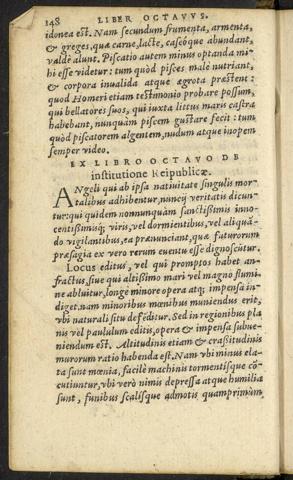 148 LIBER OCTAVVS.
idonea est. Nam secundum frumenta, armenta,
& greges, quæ carne, lacte, caseóque abundant,
valdè alunt. Piscatio autem minus optanda mi-
hi esse videtur: tum quòd pisces malè nutriant,
& corpora inualida atque ægrota præstent:
quod Homeri etiam testimonio probare possum,
qui bellatores suos, qui iuxta littus maris castra
habebant, nunquàm piscem gustare fecit: tum
quòd piscatorem algentem, nudum atque inopem
semper video.
EX LIBRO OCTAVO DE
institutione Reipublicæ.
ANgeli qui ab ipsa natiuitate singulis mor-
talibus adhibentur, nuncij veritatis dicun-
tur: qui quidem nonnunquàm sanctissimis inno-
centissimisq; viris, vel dormientibus, vel aliquã-
do vigilantibus, ea prænunciant, quæ futurorum
præsagia ex vero rerum euentu esse dignoscitur.
Locus editus, vel qui promptos habet an-
fractus, siue qui altissimo mari vel magno flumi-
ne abluitur, longè minore opera atq; impensa in-
diget. nam minoribus mœnibus muniendus erit,
vbi naturali situ defẽditur. Sed in regionibus pla
nis vel paululum editis, opera & impensa subue-
niendum est. Altitudinis etiam & crassitudinis
murorum ratio habenda est. Nam vbi minus ela-
ta sunt mœnia, facilè machinis tormentisque cõ-
cutiuntur, vbi verò nimis depressa atque humilia
sunt, funibus scalisque admotis quamprimùm